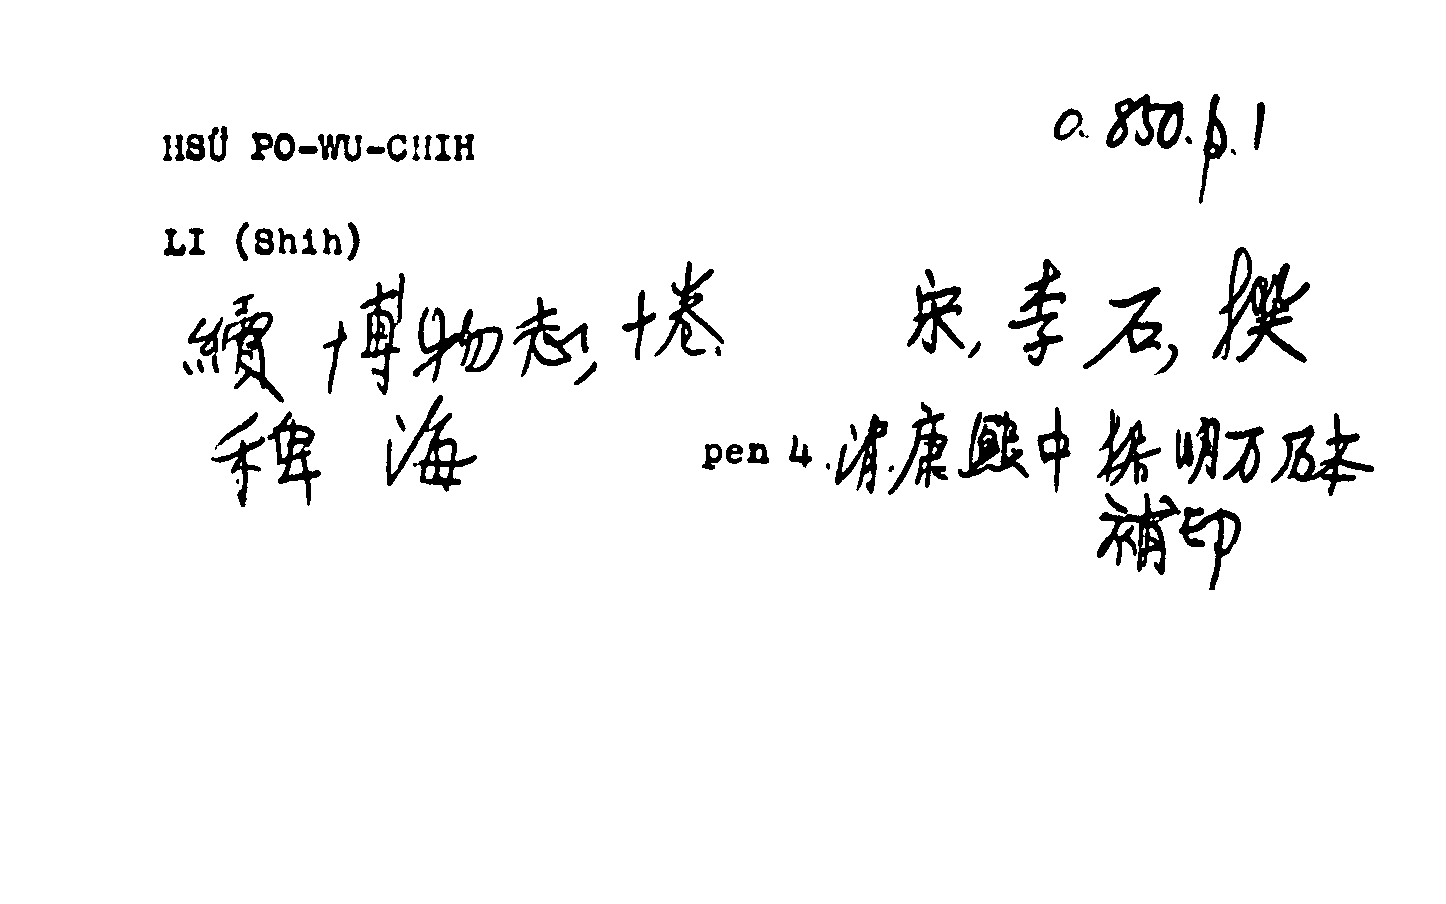 HSÜ PO-WU-CHIH 0.850.p.1
LI (Shih)
續博物志, 十卷. 宋, 李石, 撰
稗海 pen 4. 清. 康熙中 振明万历本
補印